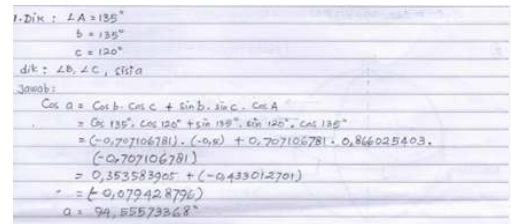 1. Dik : ∠A = 135°
b = 135°
c = 120°
dik : ∠B, ∠C, sisi a
Jawab :
Cos a = Cos b . Cos c + Sin b . sin c . Cos A
= Cos 135° . Cos 120° + sin 135° . sin 120° . Cos 135°
= (-0,707106781) . (-0,5) + 0,707106781 . 0,866025403 .
(-0,707106781)
= 0,353583905 + (-0,433012701)
= (-0,079428796)
a = 94,55573368°